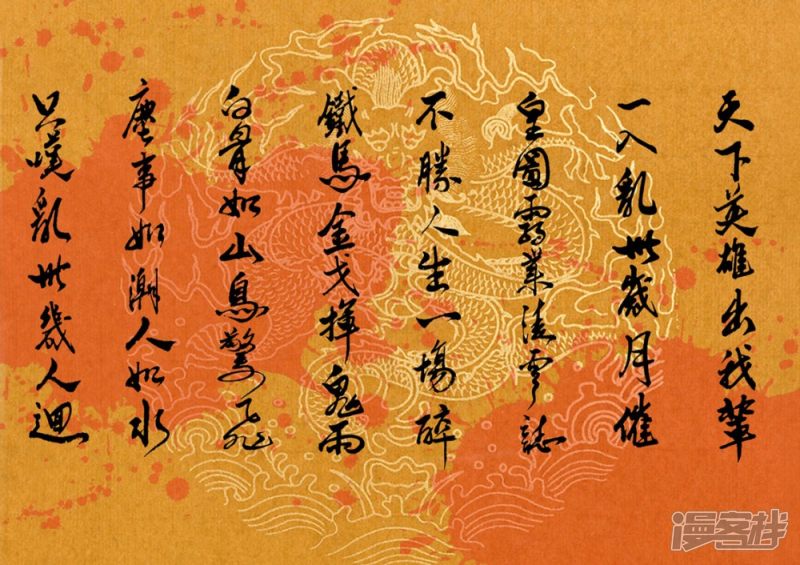 天下英雄出我輩
一入亂世歲月催
皇圖霸業淩雲誌
不勝人生一場醉
鐵馬金戈揮鬼雨
白骨如山鳥驚飛
塵事如潮人如水
只嘆亂世幾人迴
漫客栈